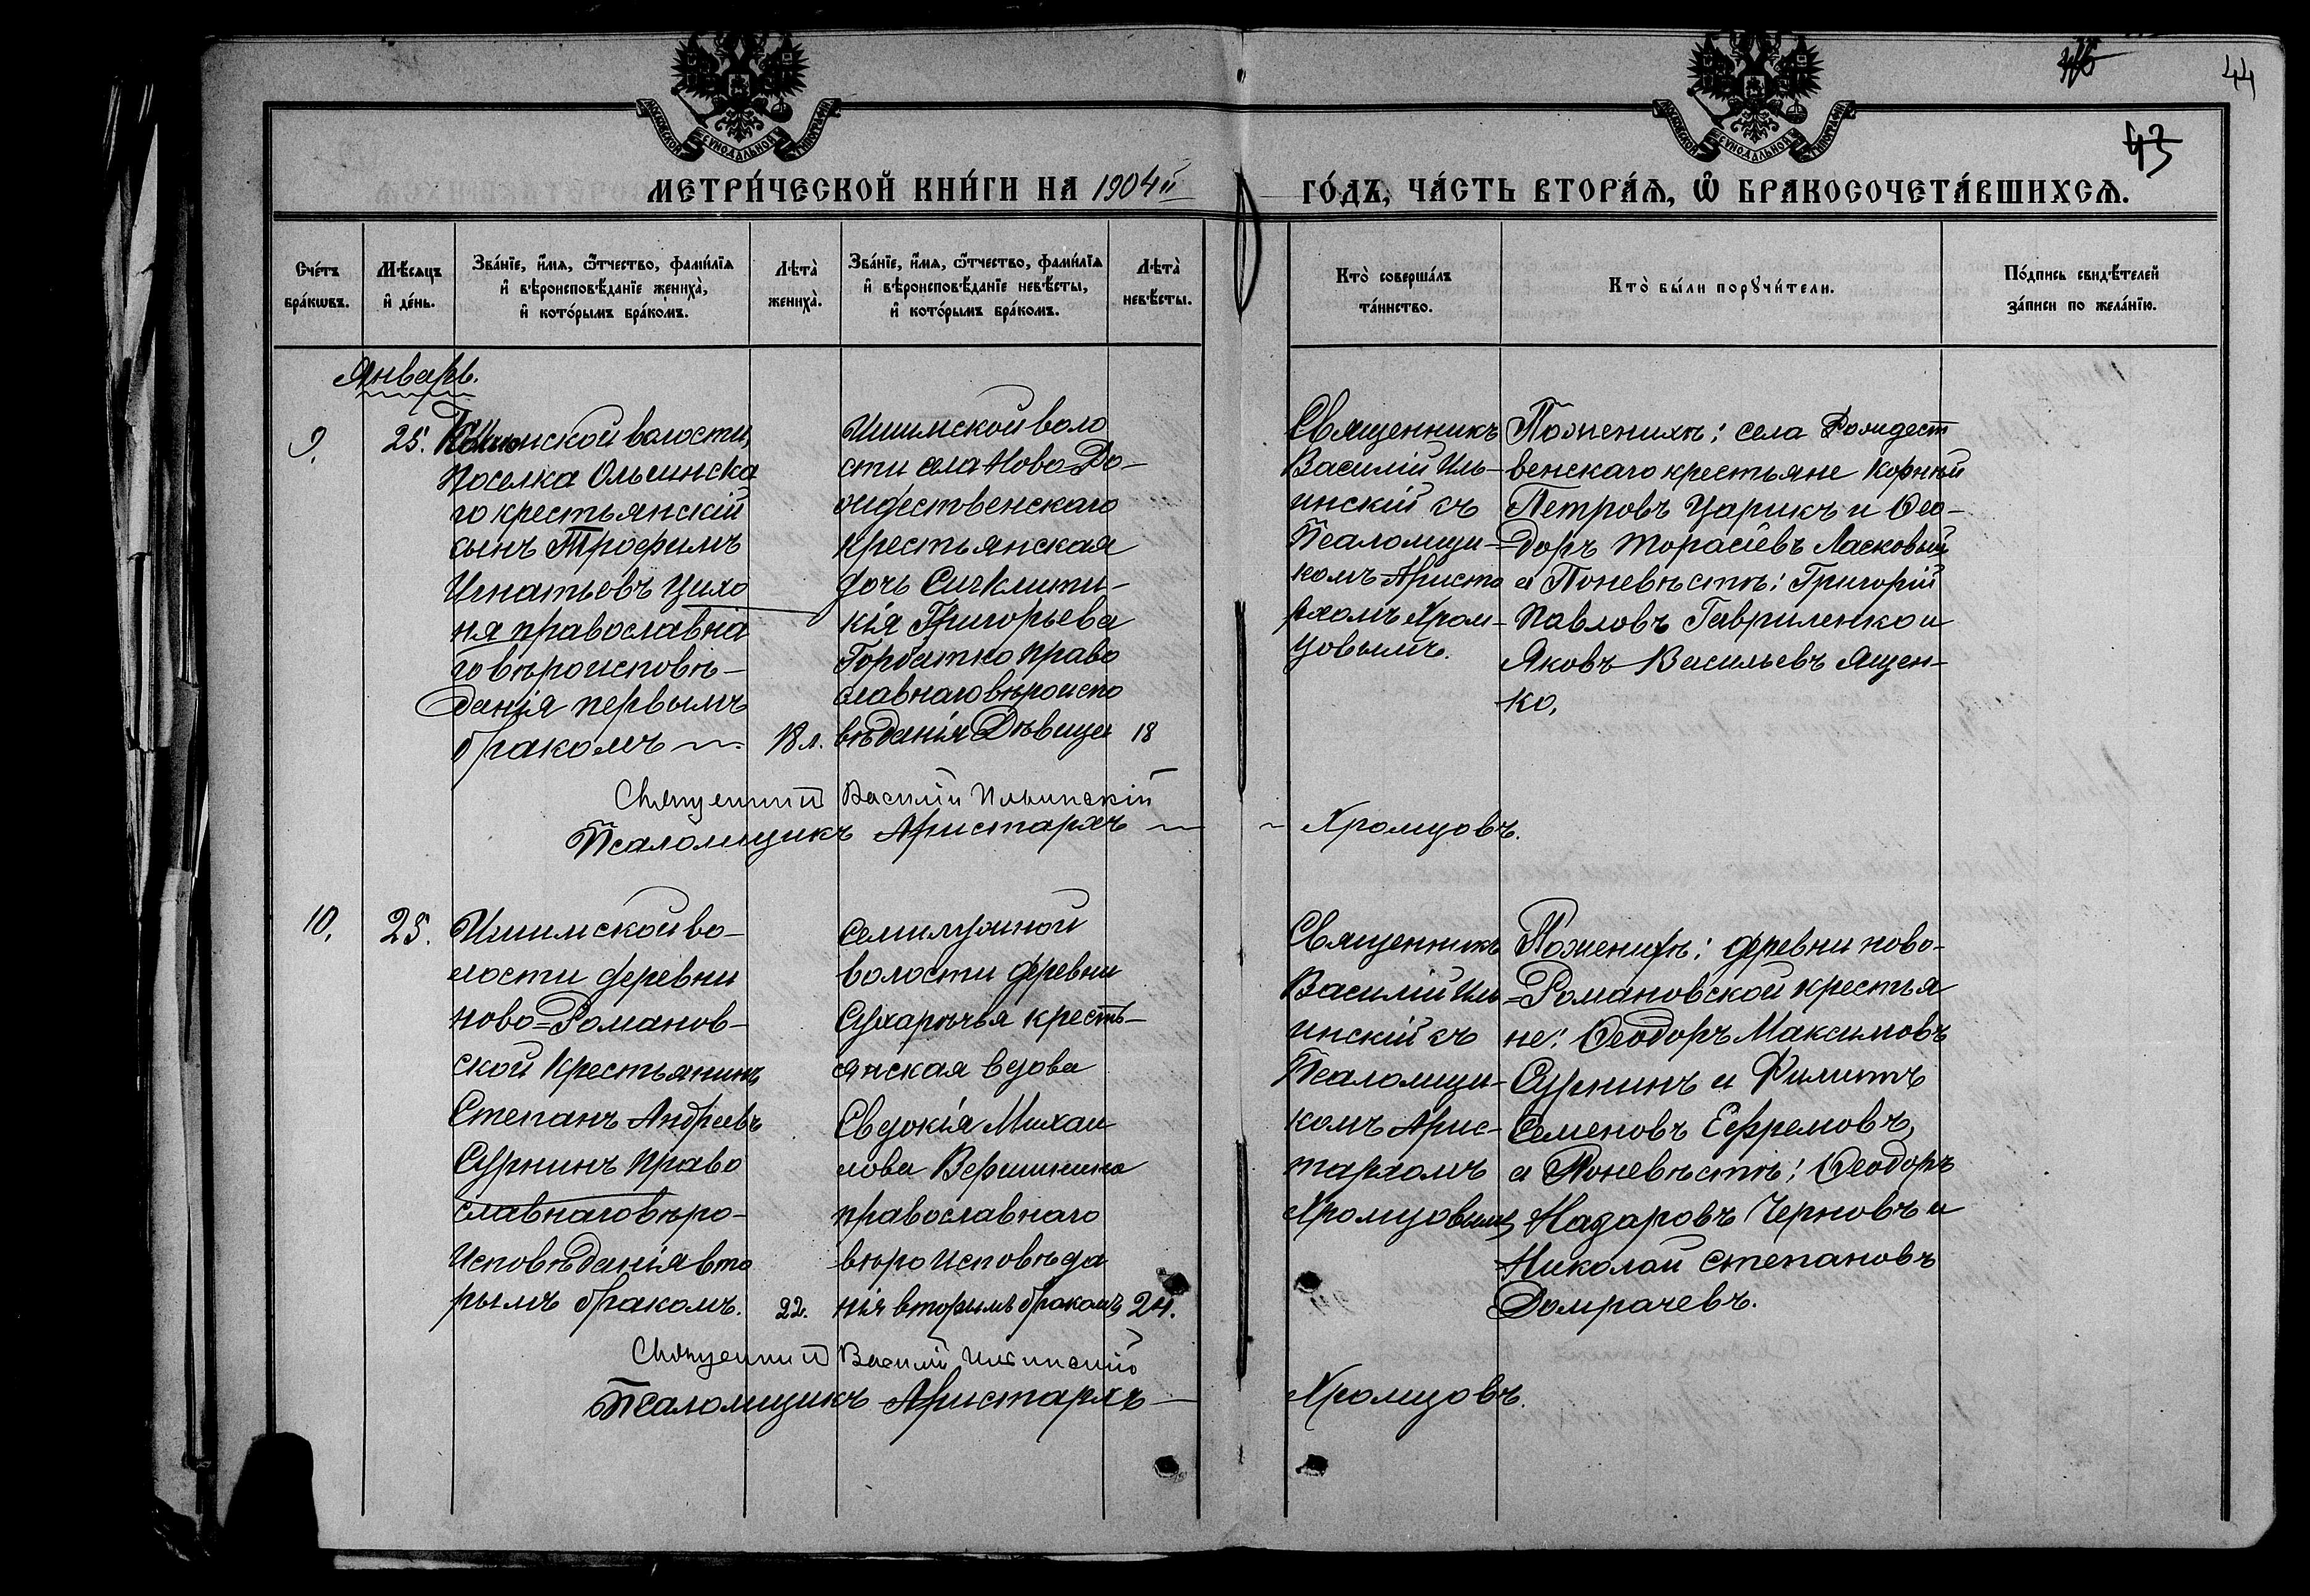 МОСКОВСКОЙ СѴНОДАЛЬНОЙ ТИПОГРАФІИ
МОСКОВСКОЙ СѴНОДАЛЬНОЙ ТИПОГРАФІИ
44
43
МЕТРИ́ЧЕСКОЙ КНИ́ГИ НА 1904й
ГО́ДЪ, ЧА́СТЬ ВТОРА́Ѧ, Ѽ БРАКОСОЧЕТА́ВШИХСѦ.
Сче́тъ
бра́кωвъ.
Мѣ́сяцъ
и҆ де́нь.
Зва́нїе, и҆́мѧ, ѻ҆́тчество, фами́лїѧ
и҆ вѣроисповѣ́данїе жениха̀,
и҆ кото́рымъ бра́комъ.
Лѣта̀
жениха̀.
Зва́нїе, и҆́мѧ, ѻ҆́тчество, фами́лїѧ
и҆ вѣроисповѣ́данїе невѣ́сты,
и҆ кото́рымъ бра́комъ.
Лѣта̀
невѣ́сты.
Кто̀ соверша́лъ
та́инство.
Кто̀ бы́ли порꙋчи́тели.
По́дпись свидѣ́телей
за́писи по жела́нїю.
Январь.
9.
25.
волости,
поселка Ольгинска
го крестьянскій
сынъ Трофимъ
Игнатьовъ Цихо
ня православна
го вѣроисповѣ-
данія первымъ
бракомъ
18 л.
Ишимской воло
сти села Ново-Ро-
ждественскаго
крестьянская
дочь Сигклити-
кія Григорьева
Горбатко право
славнаго вѣроиспо
вѣданія Дѣвица
18
Священникъ
Василій Иль-
инскій съ
Псаломщи-
комъ Ариста
рхомъ Хром-
цовымъ.
По женихѣ: села Рождест
венскаго крестьяне Корнѣй
Петровъ Царикъ и Ѳео-
доръ Торасіевъ Ласковый
а По невѣстѣ: Григорій
Павловъ Гавриленко и
Яковъ Васильевъ Ящен-
ко,
Священникъ Василій Ильинскій
Псаломщикъ Аристархъ
Хромцовъ.
10.
25.
Ишимской во-
лости деревни
ново=Романов-
ской Крестьянинъ
Степанъ Андреевъ
Суркинъ право
славнаго вѣро-
исповѣданія вто
рымъ бракомъ.
22.
Семилужной
волости деревни
Сухарѣчья кресть-
янская вдова
Евдокія Михаи
лова Вершинина
православнаго
вѣроисповѣда
нія вторымъ бракомъ
24.
Священникъ
Василій Иль
инскій съ
Псаломщи-
комъ Арис-
тархомъ
Хромцовымъ
По женихѣ: деревни ново-
=Романовской крестья
не: Ѳеодоръ Максимовъ
Суркинъ и Филиппъ
Семеновъ Ефремовъ,
а По невѣстѣ: Ѳеодоръ
Назаровъ Черновъ и
Николай Степановъ
Домрачевъ.
Священникъ Василій Ильинскій
Псаломщикъ Аристархъ
Хромцовъ.